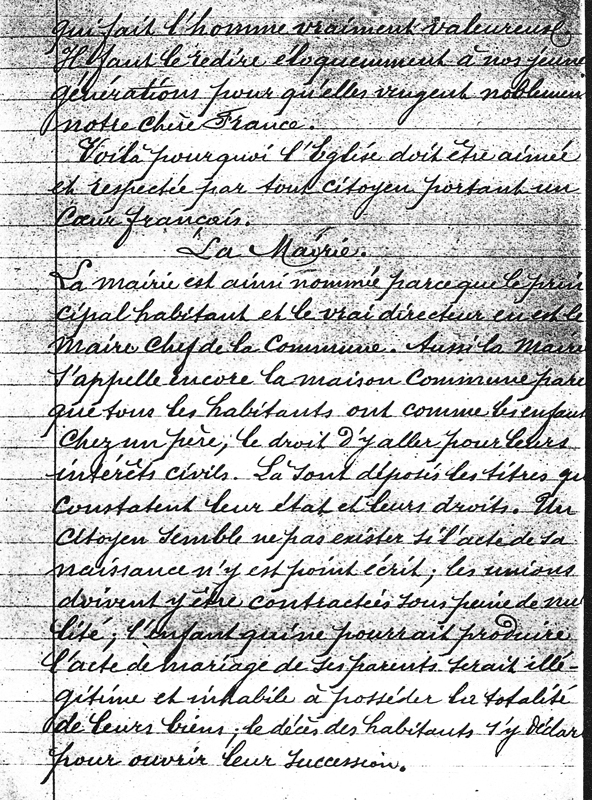 qui fait l'homme vraiment valeureux.
Il faut le redire éloquemment à nos jeune
générations pour qu'elles vengent noblemen
notre chère France.
Voilà pourquoi l'Eglise doit être aimée
et respectée par tout citoyen portant un
Cœur français.
La Mairie.
La mairie est ainsi nommée parce que le prin
cipal habitant et le vrai directeur en est le
Maire Chef de la Commune. Aussi la Mairie
s'appelle encore la maison Commune parce
que tous les habitants ont comme les enfant
Chez un père, le droit d'y aller pour leurs
intérêts civils. Là sont déposés les titres qu
Constatent leur état et leurs droits. Un
Citoyen semble ne pas exister si l'acte de sa
naissance n'y est point écrit; les unions
doivent y être contractées sous peine de nul
lité; l'enfant qui ne pourrait produire
l'acte de mariage de ses parents serait illé-
gitime et inhabile à posséder la totalité
de leurs biens; le décès des habitants s'y déclare
pour ouvrir leur succession.